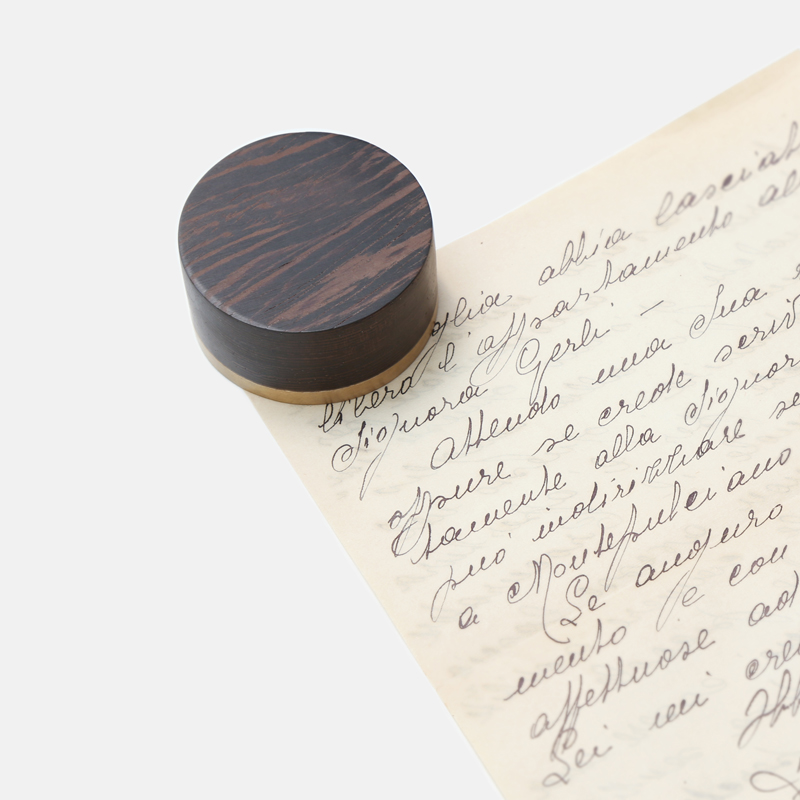 glia abbia lasciat
libera l'appartamento al
Signora Gerli -
Attendo una Sua
oppure se crede scriv
tamente alla Signor
può indirizzare se
a Montepulciano
Le auguro
mento e con
affettuose
Lei mi cre